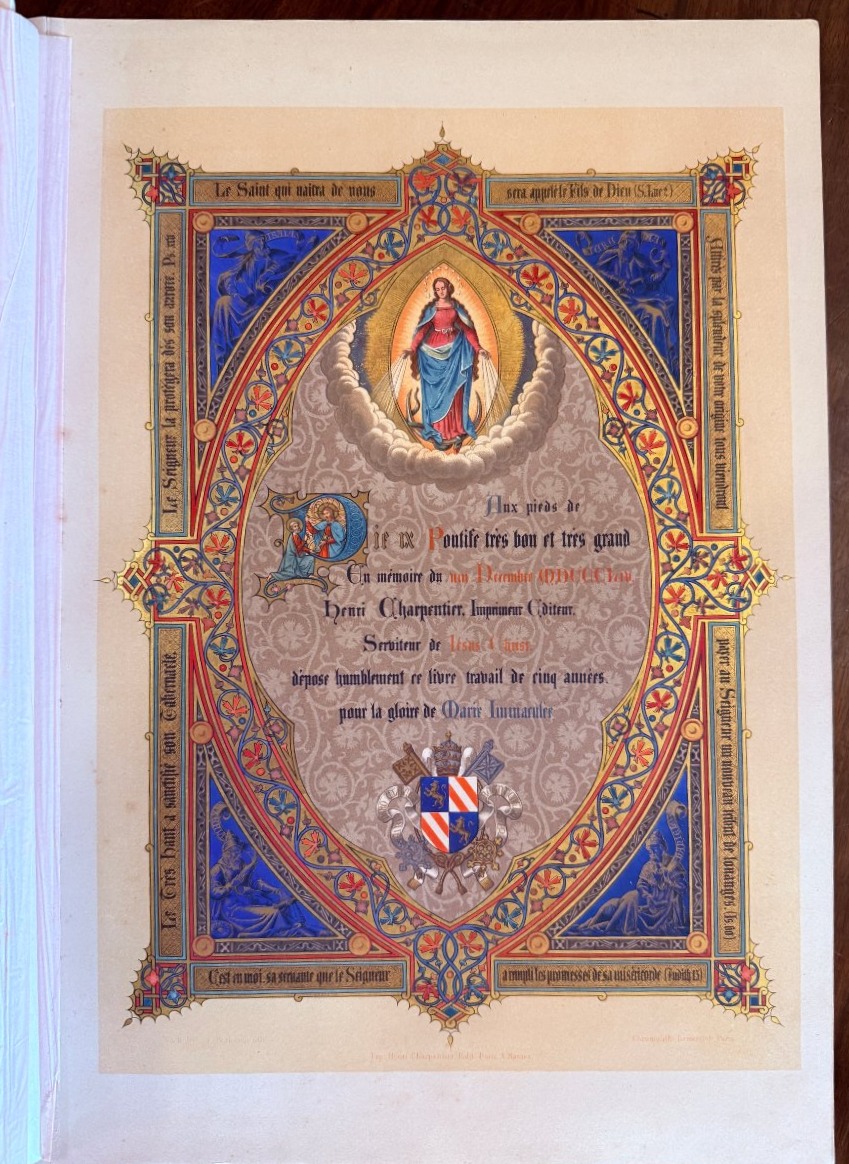 Le Saint qui naîtra de nous
sera appelé le Fils de Dieu (S. Luc 2)
Le Seigneur la protégera dès son aurore. Ps.
Attirés par la splendeur de votre origine tous viendront
ISAIE
Aux pieds de
Pie IX Pontife très bon et très grand
En mémoire du Décembre
Henri Charpentier, Imprimeur Editeur,
Serviteur de Jésus Christ,
dépose humblement ce livre travail de cinq années,
pour la gloire de Marie Immaculée
Le Très Haut a sanctifié son Tabernacle.
payer au Seigneur un nouveau tribut de louanges. (Is. 60)
DAVID
C'est en moi, sa servante que le Seigneur
a rempli les promesses de sa miséricorde (Judith 13)
Imp. Henri Charpentier